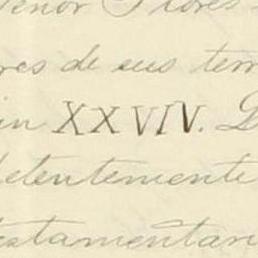 enor Flores
res de sus terr
in XXVIV. D
detentemente
testamentari